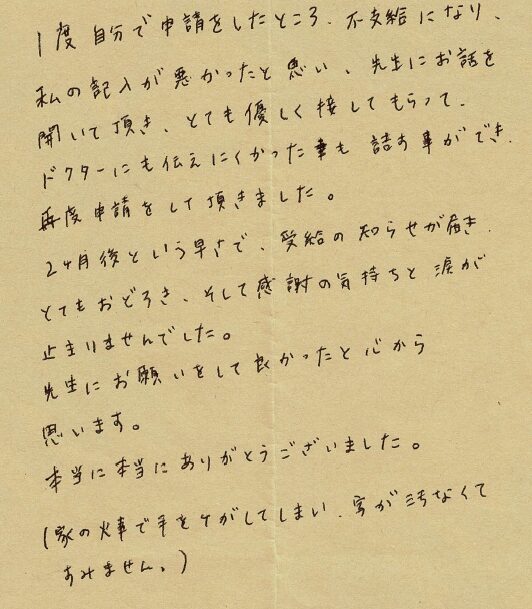 1度自分で申請をしたところ、不支給になり、
私の記入が悪かったと思い、先生にお話を
聞いて頂き、とても優しく接してもらって、
ドクターにも伝えにくかった事も話す事ができ、
再度申請をして頂きました。
2ヶ月後という早さで、受給の知らせが届き、
とてもおどろき、そして感謝の気持ちと涙が
止まりませんでした。
先生にお願いをして良かったと心から
思います。
本当に本当にありがとうございました。
(家の火事で手をケガしてしまい、字が汚なくて
すみません。)